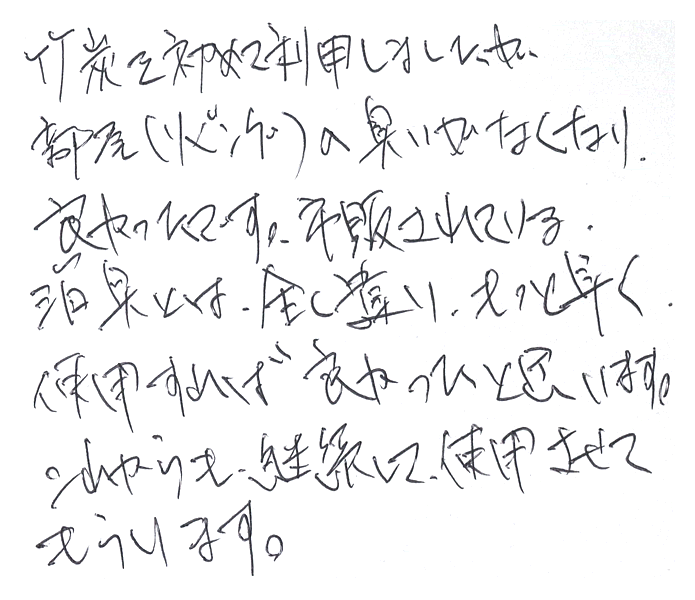 竹炭を初めて利用しましたが、
部屋(リビング)の臭いがなくなり、
良かったです。市販されている、
消臭とは、全く違い、もっと早く、
使用すれば良かったと思います。
これからも、継続して、使用させて
もらいます。